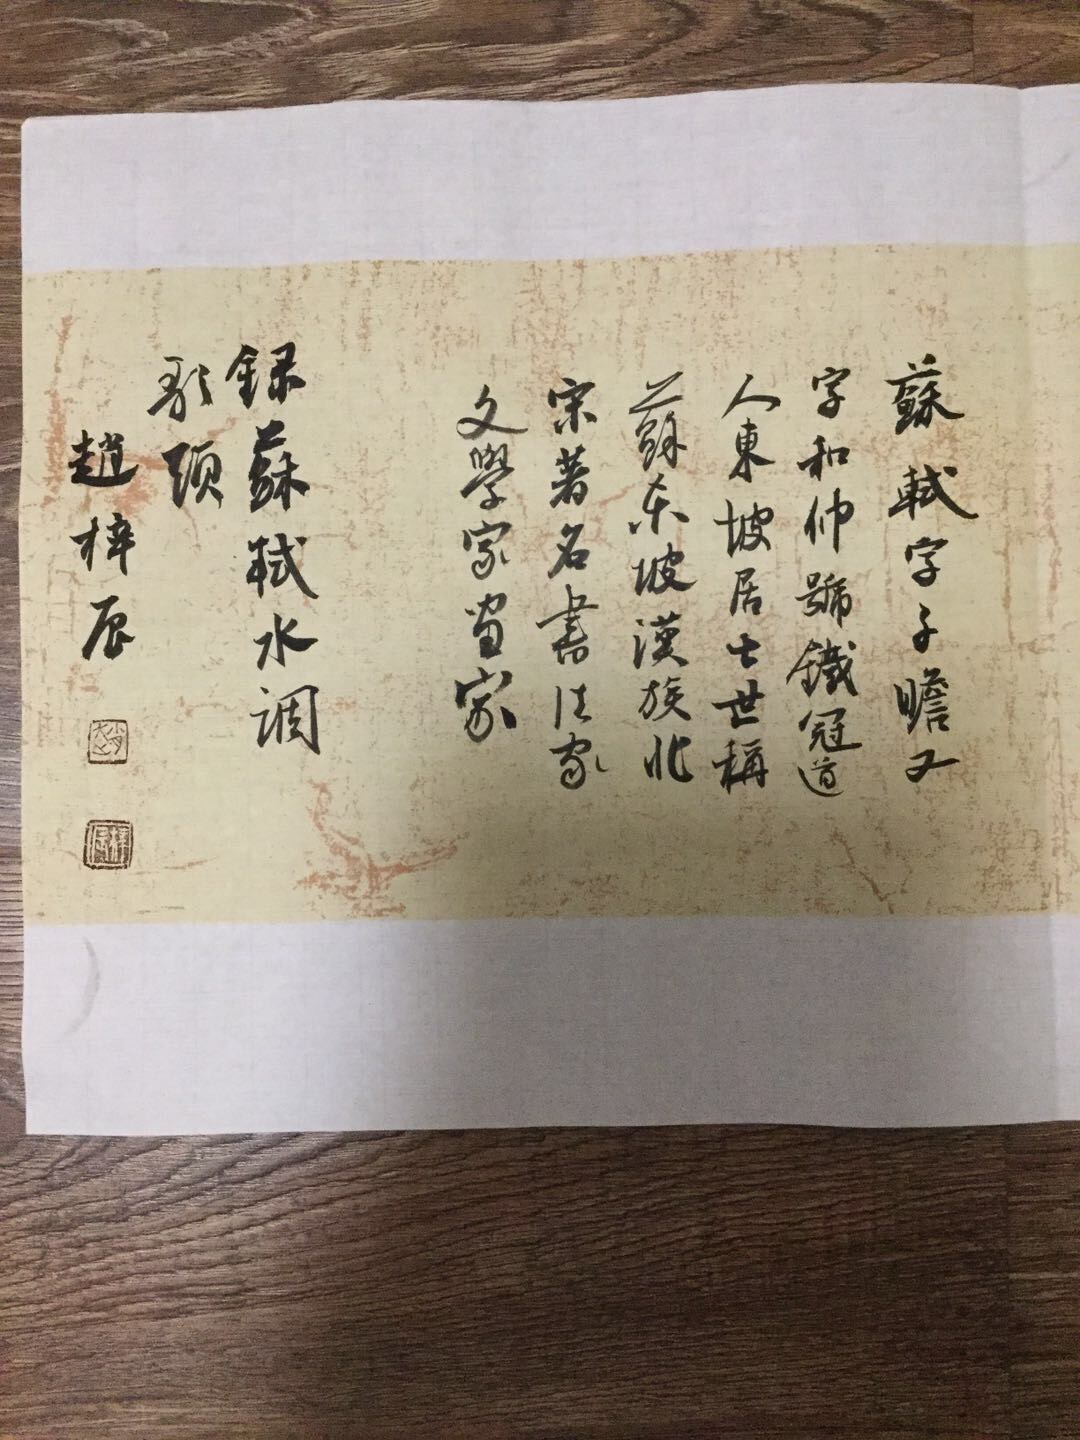 蘇軾字子瞻又
字和仲號鐵冠道
人東坡居士世稱
蘇东坡漢族北
宋著名書法家
文學家畫家
録蘇軾水调
歌頭
趙梓辰
趙
梓辰